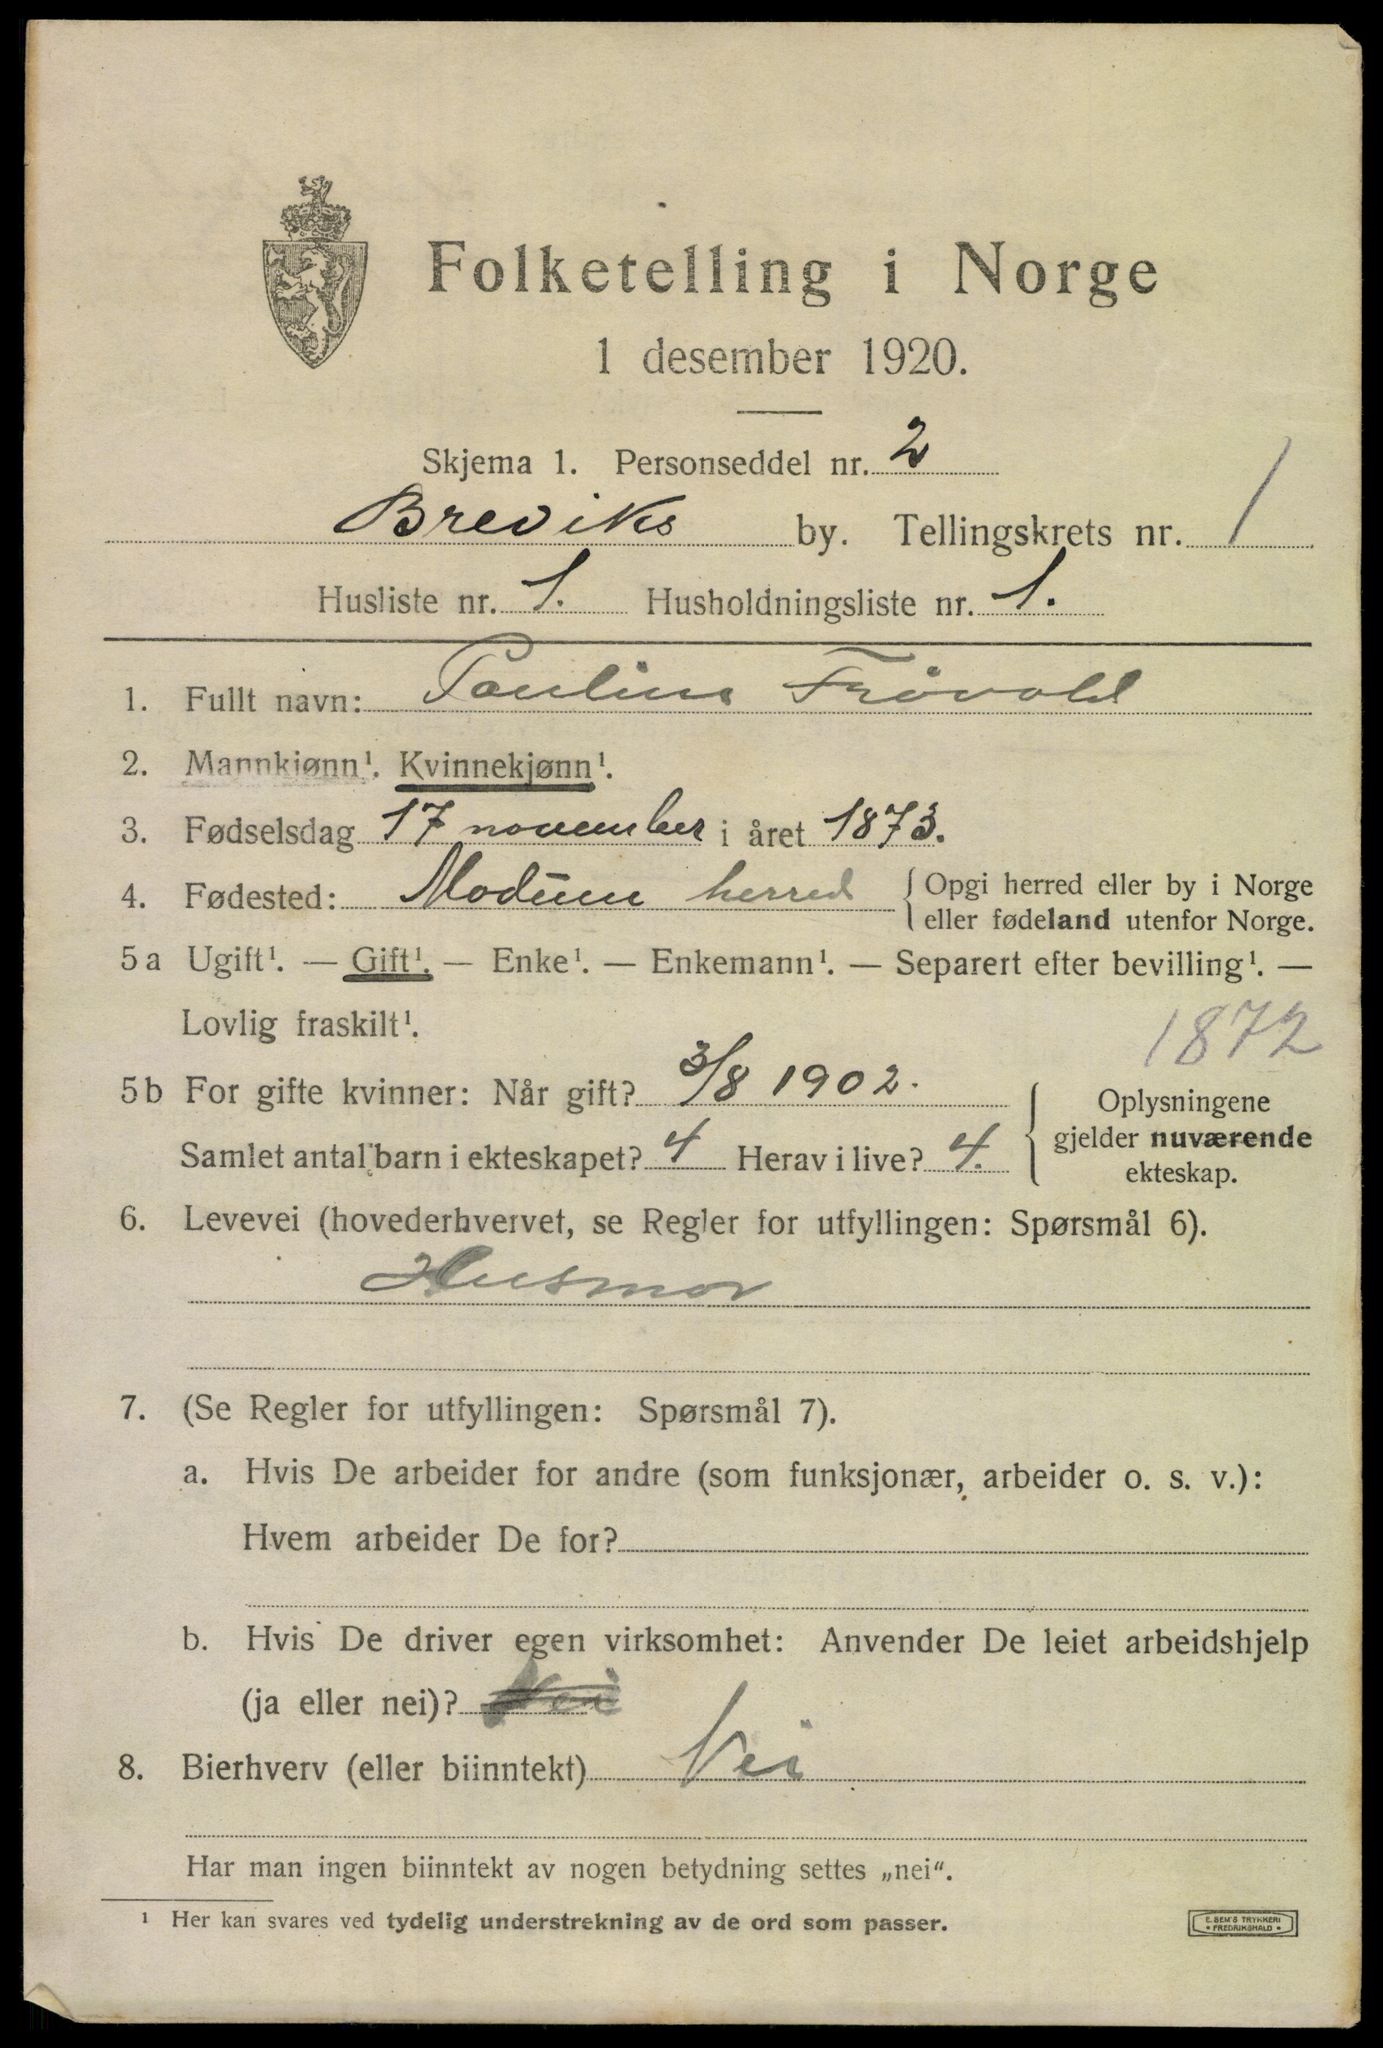 Folketelling i Norge
1 desember 1920.
Skjema 1. Personseddel nr. 2
Breviks by. Tellingskrets nr. 1
Husliste nr. 1. Husholdningsliste nr. 1.
1. Fullt navn: Pauline Frövold
2. Mannkjønn¹. Kvinnekjønn¹.
3. Fødselsdag 17 november i året 1873.
4. Fødested: Modum herred { Opgi herred eller by i Norge
eller fødeland utenfor Norge.
5a Ugift¹. — Gift¹. — Enke¹. — Enkemann¹. — Separert efter bevilling¹. —
Lovlig fraskilt¹.
1872
5b For gifte kvinner: Når gift? 3/8 1902.
Samlet antal barn i ekteskapet? 4 Herav i live? 4.
Oplysningene
gjelder nuværende
ekteskap.
6. Levevei (hovederhvervet, se Regler for utfyllingen: Spørsmål 6).
Husmor
7. (Se Regler for utfyllingen: Spørsmål 7).
a. Hvis De arbeider for andre (som funksjonær, arbeider o. s. v.):
Hvem arbeider De for?
b. Hvis De driver egen virksomhet: Anvender De leiet arbeidshjelp
(ja eller nei)? Nei
8. Bierhverv (eller biinntekt) Nei
Har man ingen biinntekt av nogen betydning settes „nei“.
¹ Her kan svares ved tydelig understrekning av de ord som passer.
E. SEM'S TRYKKERI
• FREDRIKSHALD •